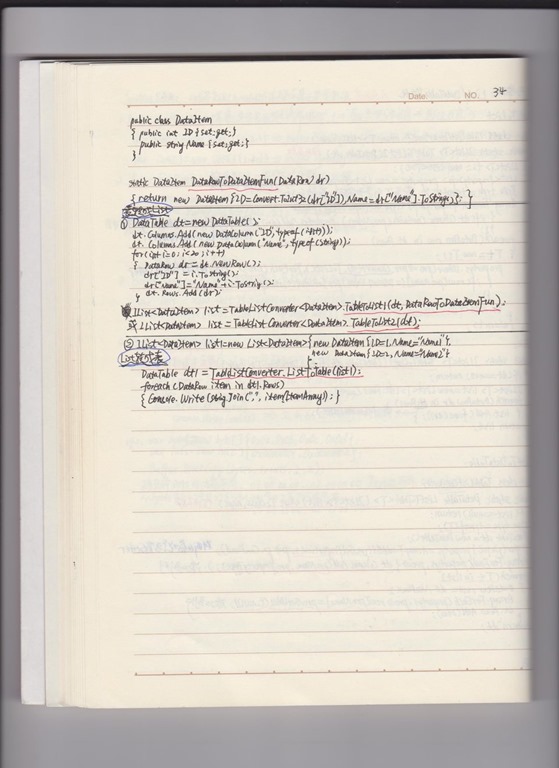 Date. NO. 34
public class DataItem
{ public int ID {set;get;}
public string Name {set;get;}
}
static DataItem DataRowToDataItemFun(DataRow dr)
{ return new DataItem{ID=Convert.ToInt32(dr["ID"]),Name=dr["Name"].ToString()}; }
表转成List
① DataTable dt=new DataTable();
dt.Columns.Add(new DataColumn("ID",typeof(int)));
dt.Columns.Add(new DataColumn("Name",typeof(string)));
for(int i=0;i<20;i++)
{ DataRow dr=dt.NewRow();
dr["ID"]=i.ToString();
dr["Name"]="Name"+i.ToString();
dt.Rows.Add(dr);
}
IList<DataItem> list=TableListConverter<DataItem>.TableToList1(dt,DataRowToDataItemFun);
或 IList<DataItem> list=TableListConverter<DataItem>.TableToList2(dt);
② IList<DataItem> list1=new List<DataItem>{new DataItem{ID=1,Name="Name1"},
new DataItem{ID=2,Name="Name2"}
};
List转成表
DataTable dt1=TableListConverter.ListToTable(list1);
foreach(DataRow item in dt1.Rows)
{ Console.Write(string.Join(",",item.ItemArray)); }